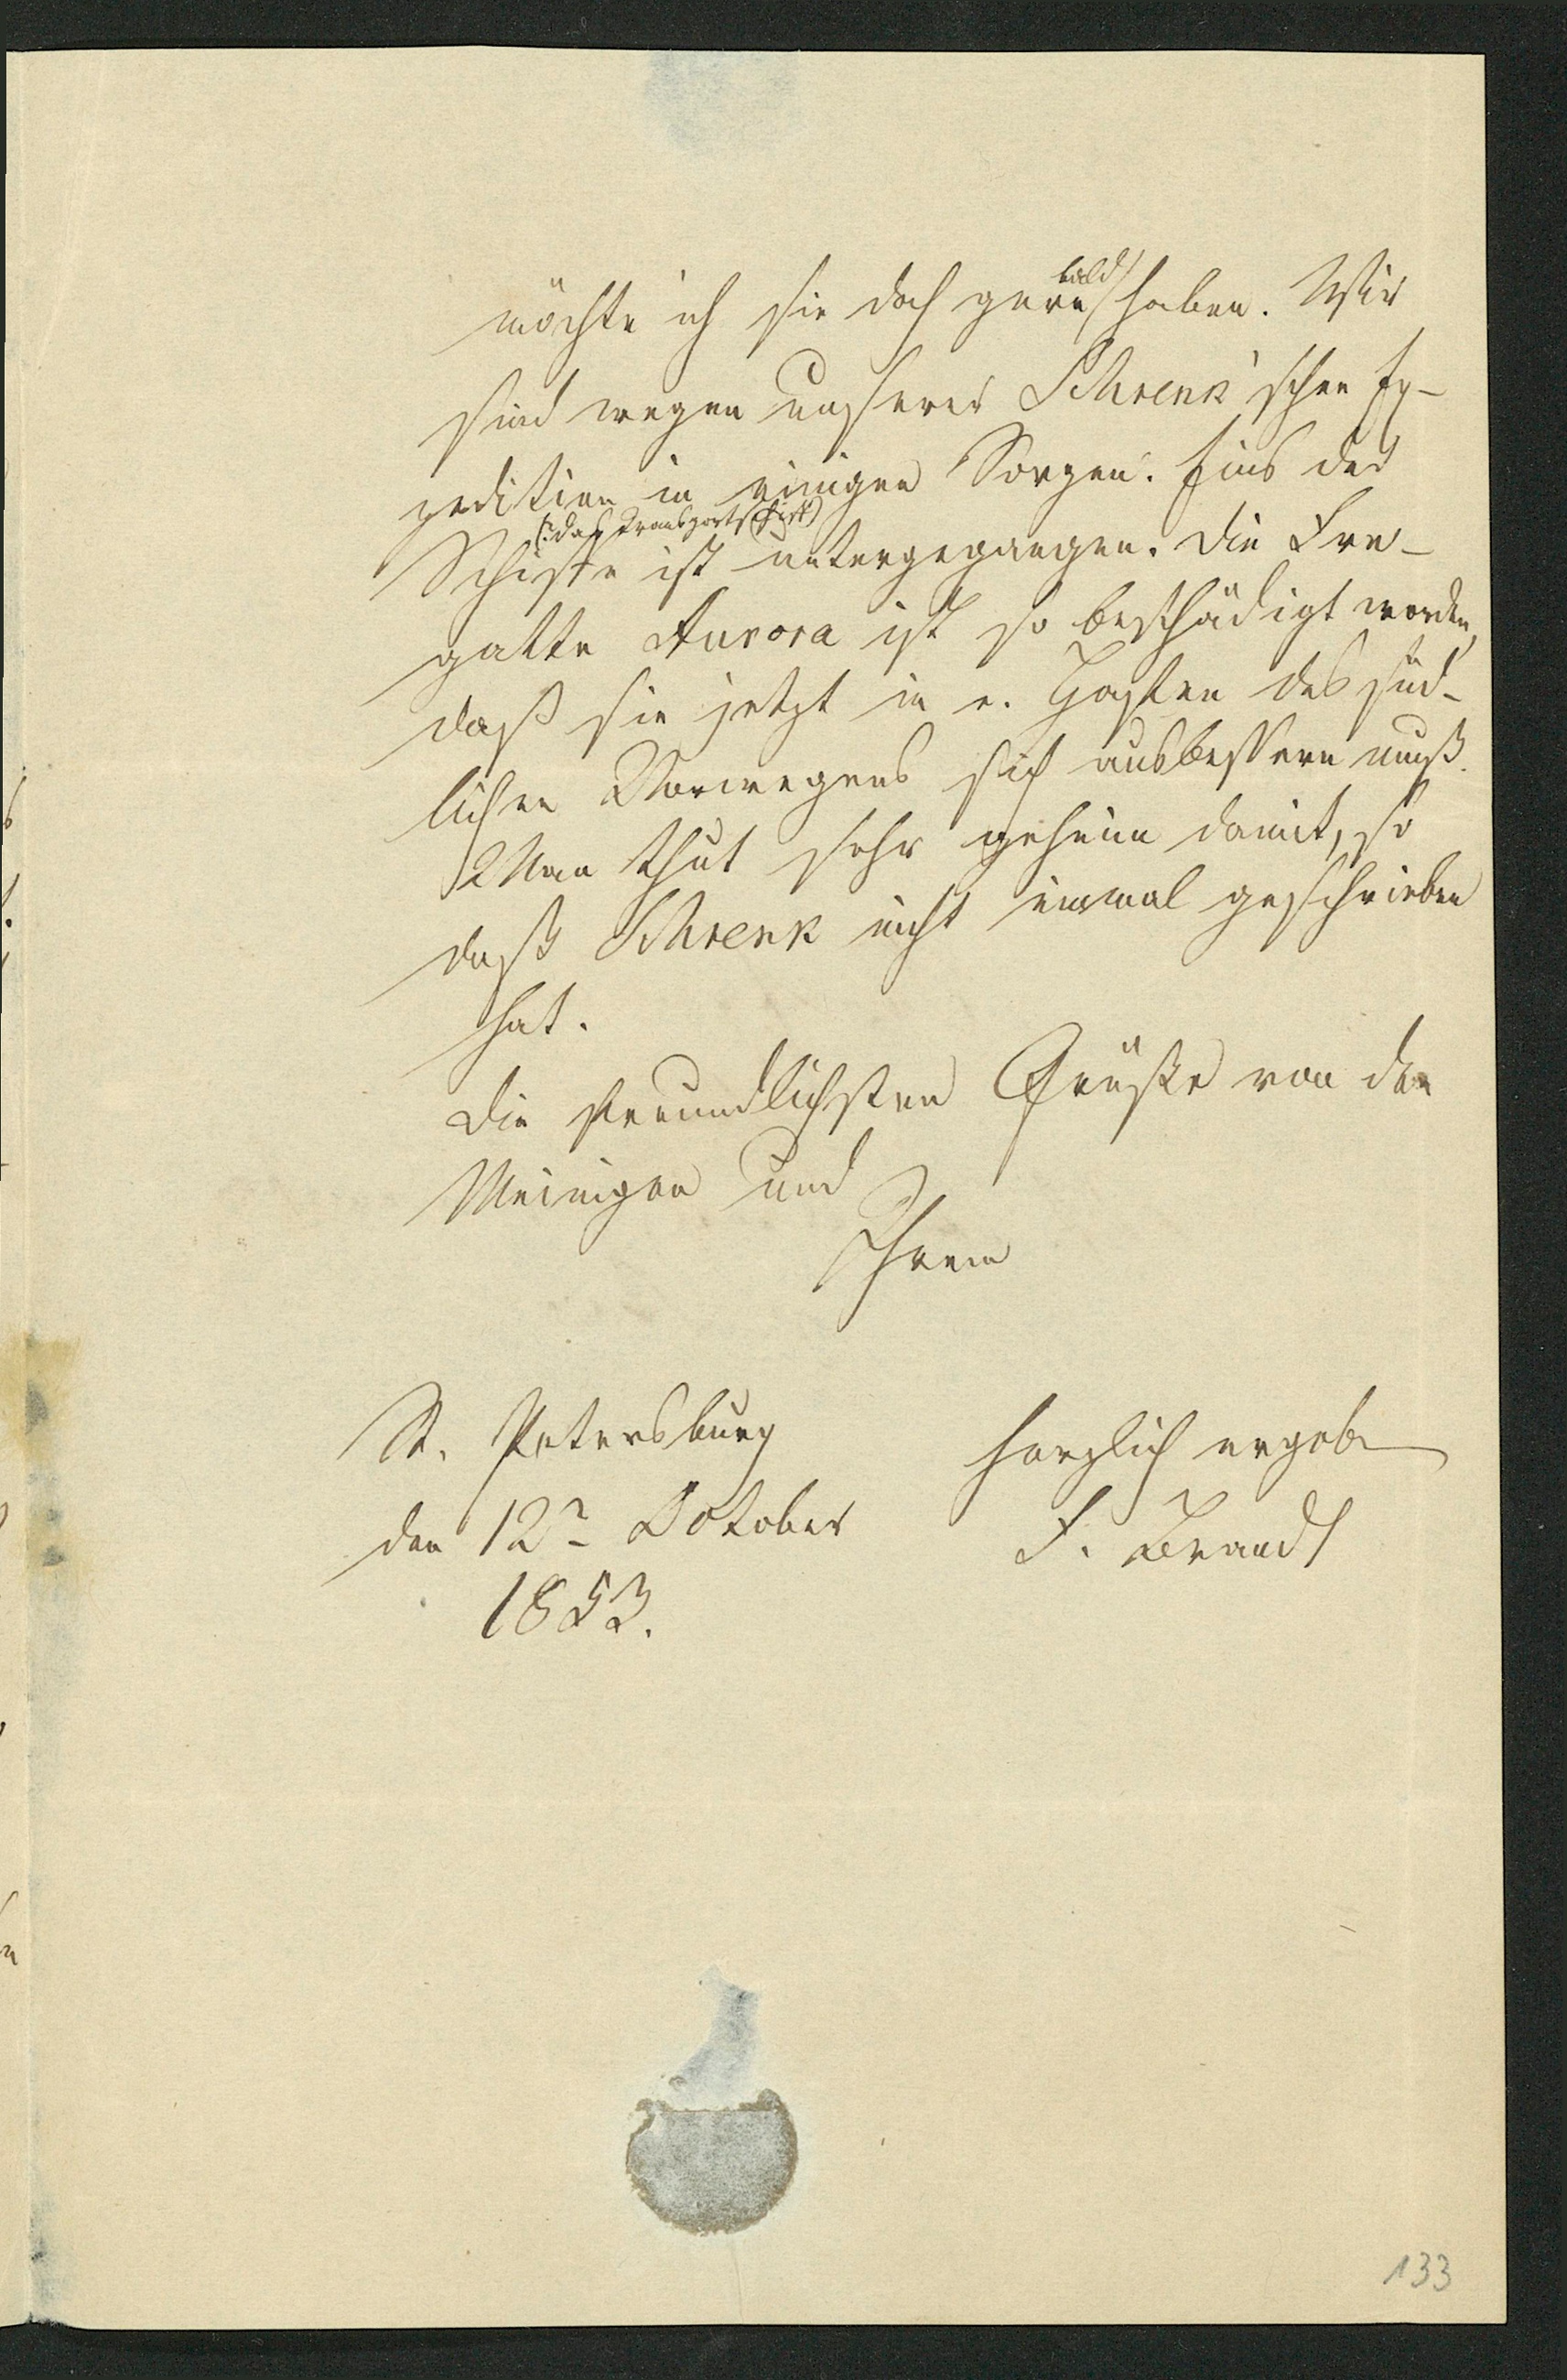 möchte ich sie doch gern bald haben. Wir
sind wegen unserer Schrenk'schen Ex-
pedition in einigen Sorgen. Eins der
Schiffe (: das Transportschiff) ist untergegangen. Die Fre-
gatte Aurora ist so beschädigt worden,
daß sie jetzt in e. Hafen des süd-
lichen Norwegens sich ausbessern muß.
Man thut sehr geheim damit, so
daß Schrenk nicht einmal geschrieben
hat.
Die freundlichsten Grüße von den
Meinigen und
Ihrem
herzlich ergeben
F. Brandt
St. Petersburg
den 12n October
1853.
133